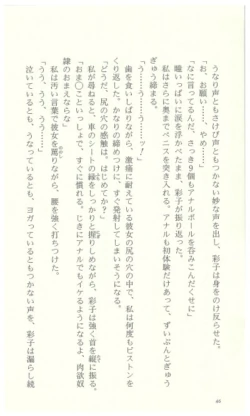 うなり声ともさけび声ともつかない妙な声を出し、彩子は身をのけ反らせた。
「お、お願い……、やめ……」
瞳いっぱいに涙を浮かべたまま、彩子が振り返った。
「なに言ってるんだ、さっき9個もアナルボールを呑みこんだくせに」
私はさらに奥までペニスを突き入れる。アナルも初体験だけあって、ずいぶんとぎゅう
ぎゅう締まる。
「うっ……う……う……ッ！」
歯を食いしばりながら、激痛に耐えている彼女の尻の穴の中で、私は何度もピストンを
くり返した。かなりの締めつけに、すぐ発射してしまいそうになる。
「どうだ、尻の穴の感触は。はじめてか？」
私が尋ねると、車のシートの縁をしっかりと握りしめながら、彩子は強く首を縦に振る。
「おま〇こといっしょで、すぐに慣れる。じきにアナルでもイケるようになるよ、肉欲奴
隷のおまえならな」
私は汚い言葉で彼女を罵りながら、腰を強く打ちつけた。
「うう、うう、うう……」
泣いているとも、うなっているとも、ヨガっているともつかない声を、彩子は漏らし続
46